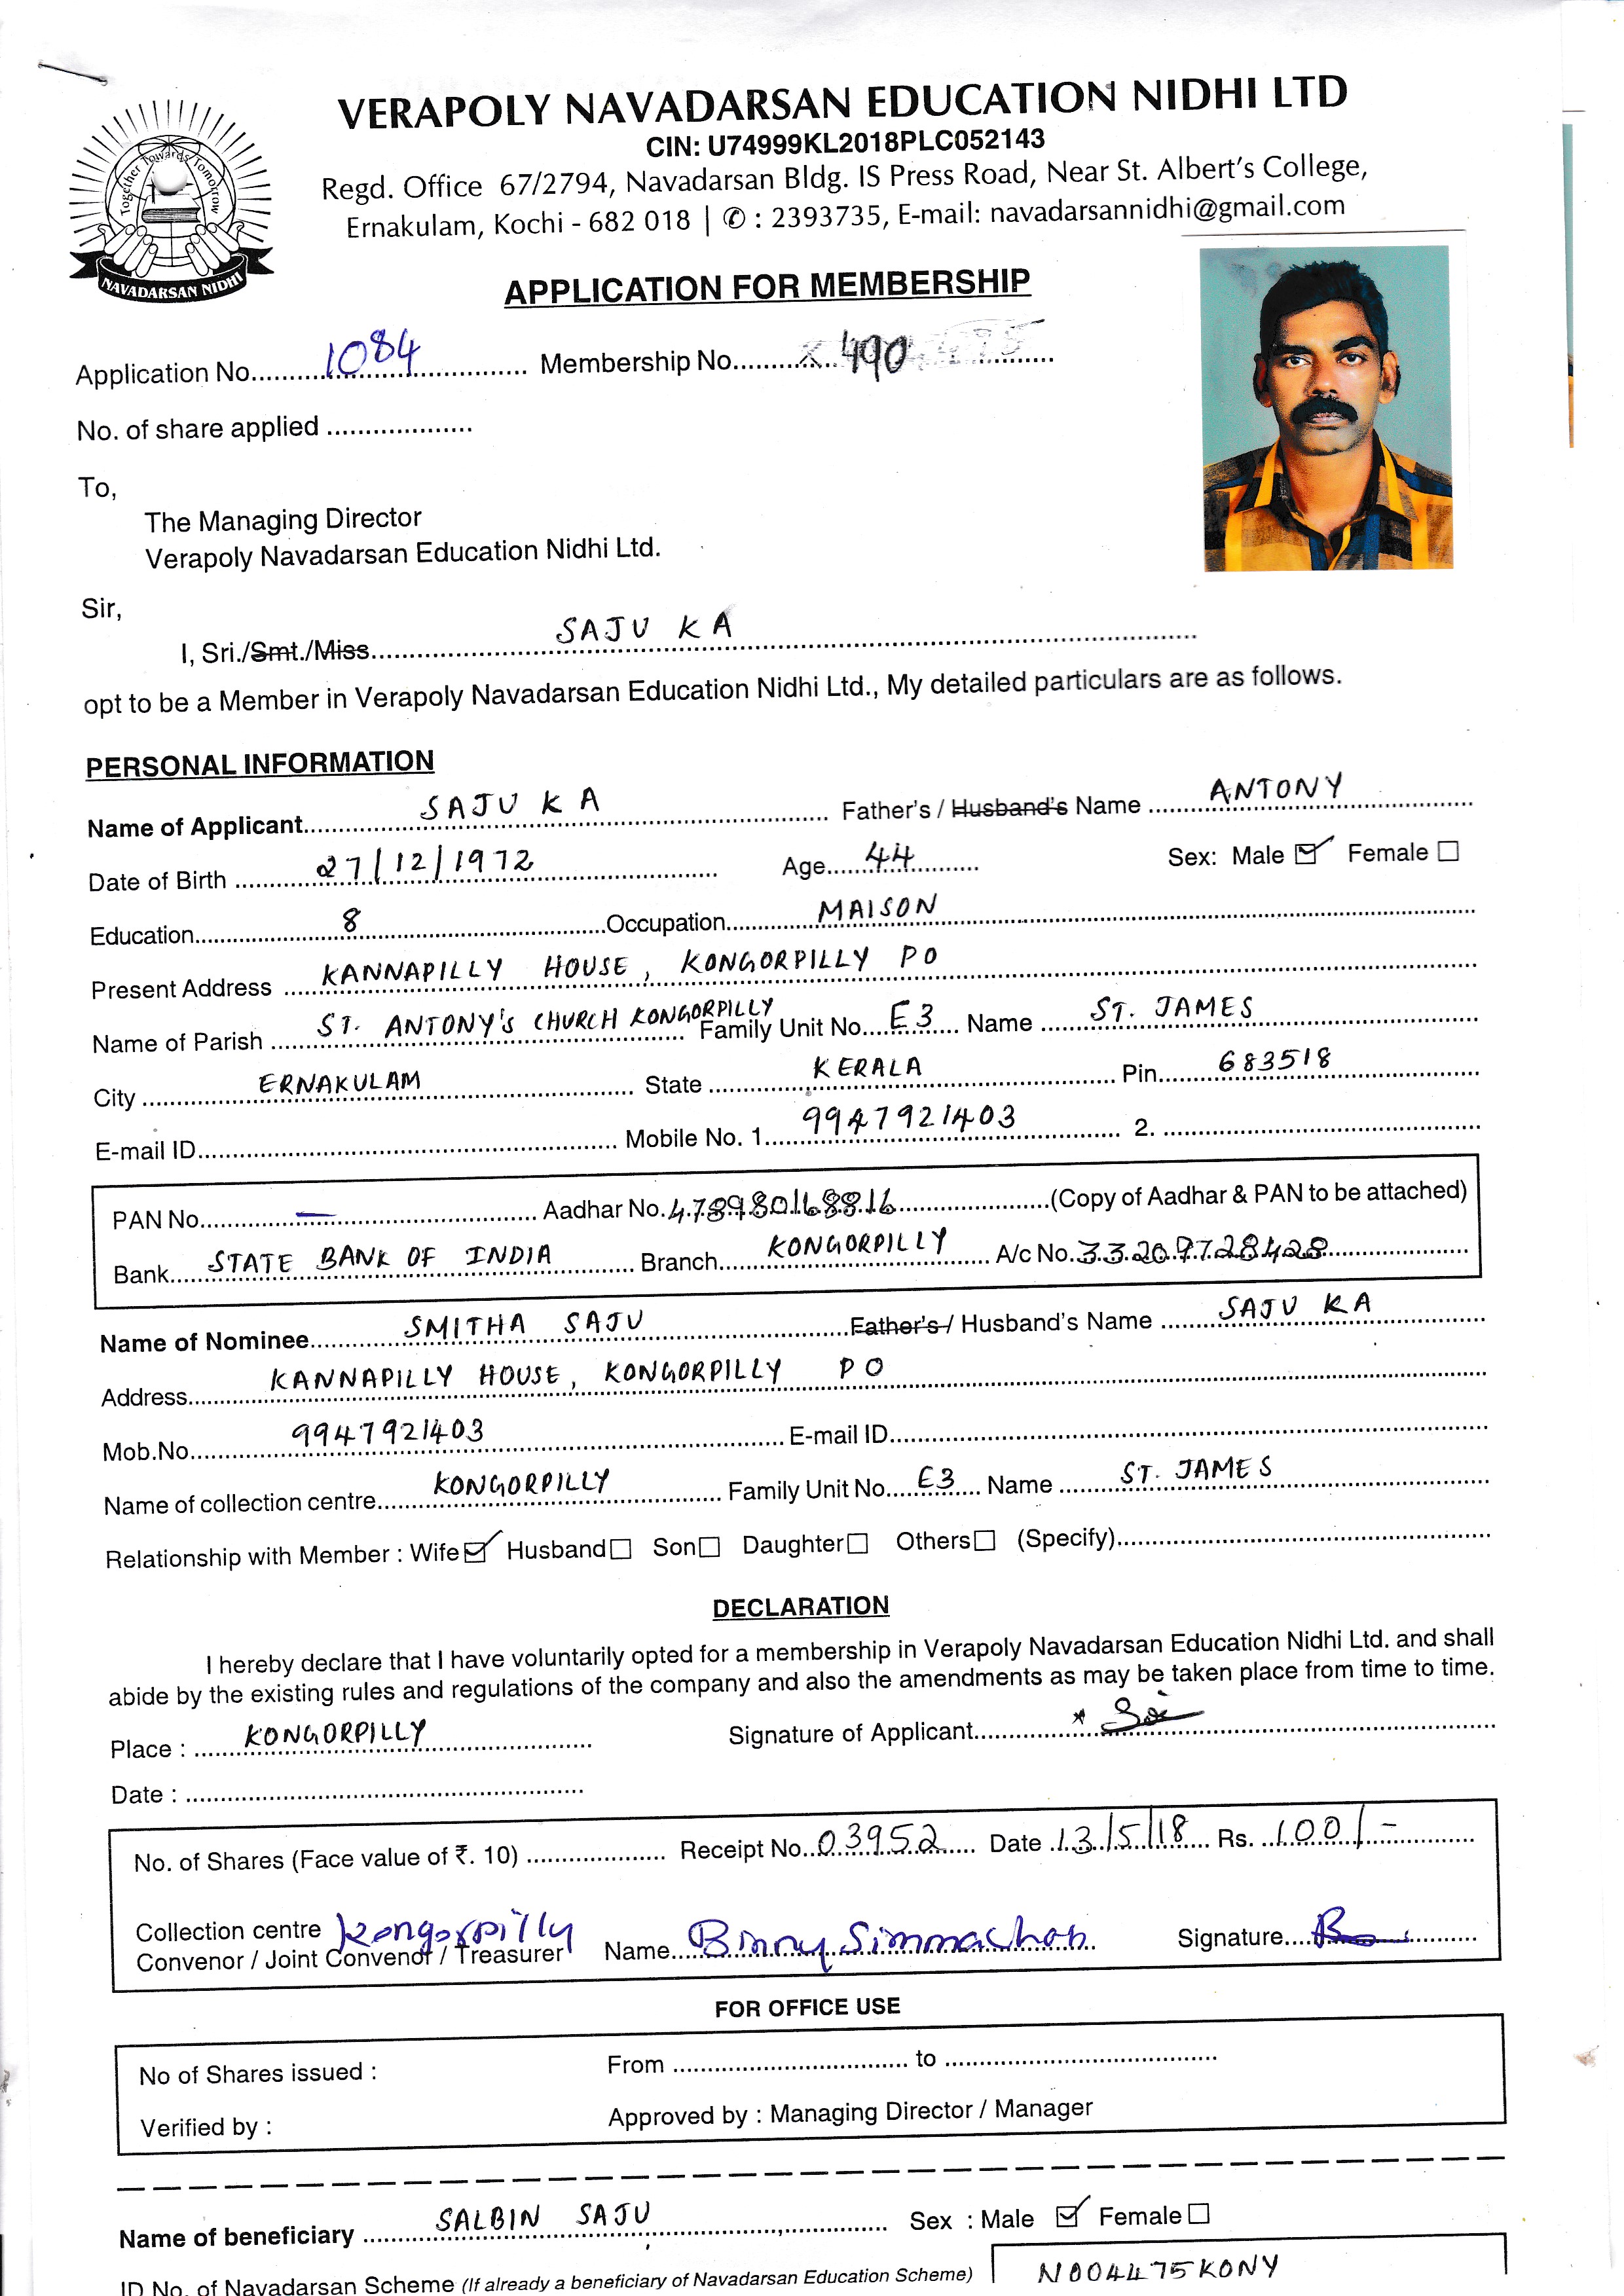 VERAPOLY NAVADARSAN EDUCATION NIDHI LTD
CIN: U74999KL2018PLC052143
Regd. Office 67/2794, Navadarsan Bldg. IS Press Road, Near St. Albert's College,
Ernakulam, Kochi - 682 018 | ✆ : 2393735, E-mail: navadarsannidhi@gmail.com
Together Towards Tomorrow
NAVADARSAN NIDHI
APPLICATION FOR MEMBERSHIP
Application No. 1084 Membership No. 490
No. of share applied
To,
The Managing Director
Verapoly Navadarsan Education Nidhi Ltd.
Sir,
I, Sri./Smt./Miss SAJU K A
opt to be a Member in Verapoly Navadarsan Education Nidhi Ltd., My detailed particulars are as follows.
PERSONAL INFORMATION
Name of Applicant SAJU K A Father's / Husband's Name ANTONY
Date of Birth 27/12/1972 Age 44 Sex: Male ☑ Female ☐
Education 8 Occupation MAISON
Present Address KANNAPILLY HOUSE, KONGORPILLY PO
Name of Parish ST. ANTONY'S CHURCH KONGORPILLY Family Unit No. E3 Name ST. JAMES
City ERNAKULAM State KERALA Pin 683518
E-mail ID Mobile No. 1. 9947921403 2.
PAN No. — Aadhar No. 478980168816 (Copy of Aadhar & PAN to be attached)
Bank STATE BANK OF INDIA Branch KONGORPILLY A/c No. 33209728428
Name of Nominee SMITHA SAJU Father's / Husband's Name SAJU K A
Address KANNAPILLY HOUSE, KONGORPILLY PO
Mob.No. 9947921403 E-mail ID
Name of collection centre KONGORPILLY Family Unit No. E3 Name ST. JAMES
Relationship with Member : Wife ☑ Husband ☐ Son ☐ Daughter ☐ Others ☐ (Specify)
DECLARATION
I hereby declare that I have voluntarily opted for a membership in Verapoly Navadarsan Education Nidhi Ltd. and shall
abide by the existing rules and regulations of the company and also the amendments as may be taken place from time to time.
Place : KONGORPILLY Signature of Applicant
Date :
No. of Shares (Face value of ₹. 10) Receipt No. 03952 Date 13/5/18 Rs. 100/-
Collection centre Kongorpilly
Convenor / Joint Convenor / Treasurer Name Binny Simmachan Signature
FOR OFFICE USE
No of Shares issued : From to
Verified by : Approved by : Managing Director / Manager
Name of beneficiary SALBIN SAJU Sex : Male ☑ Female ☐
ID No. of Navadarsan Scheme (If already a beneficiary of Navadarsan Education Scheme) N004475KONY